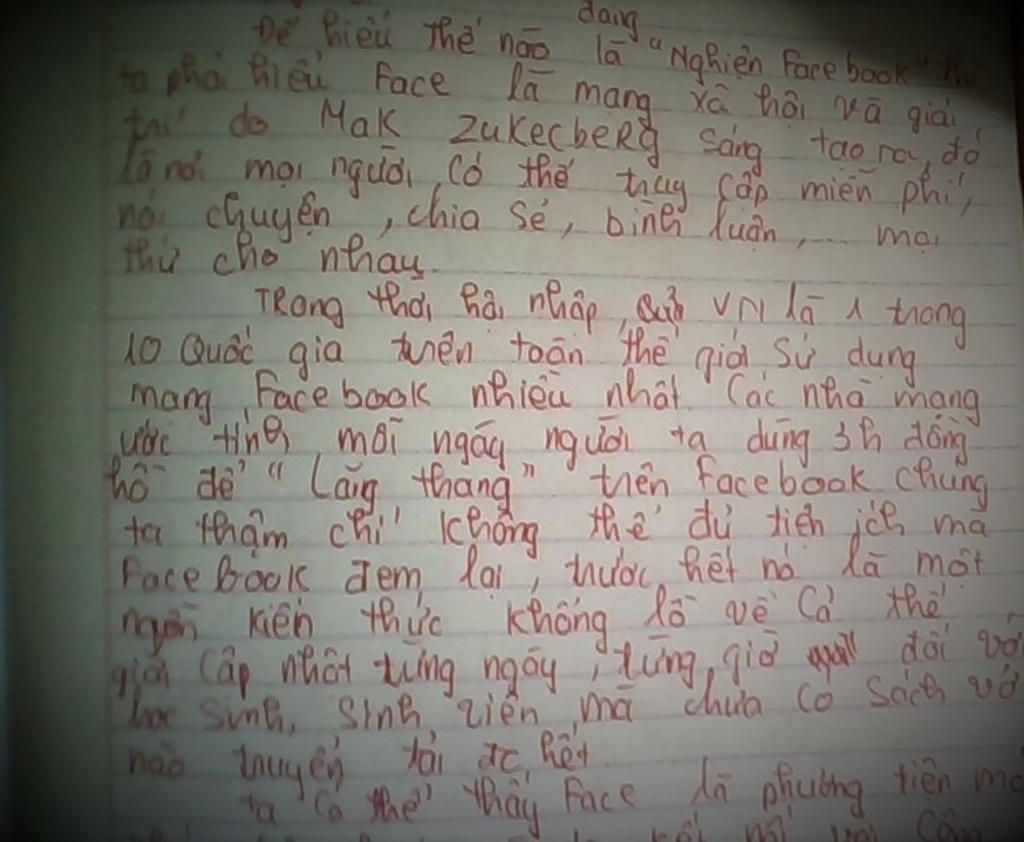 đang
Để hiểu thế nào là "Nghiện Facebook" thì
ta phải hiểu Face là mạng xã hội và giải
trí do Mak Zukecberg sáng tạo ra, đó
là nơi mọi người có thể truy cập miễn phí,
nói chuyện, chia sẻ, bình luận,... mọi
thứ cho nhau.
Trong thời hội nhập, VN là 1 trong
10 Quốc gia trên toàn thế giới sử dụng
mạng Facebook nhiều nhất. Các nhà mạng
ước tính mỗi ngày người ta dùng 3h đồng
hồ để "Lang thang" trên Facebook chúng
ta thậm chí không thể đủ tiện ích mà
Facebook đem lại, trước hết nó là một
nguồn kiến thức khổng lồ về cả thế
giới cập nhật từng ngày, từng giờ đối với
học sinh, sinh viên mà chưa có sách vở
nào truyền tải đc hết
ta có thể thấy Face là phương tiện
kết nối với cộng